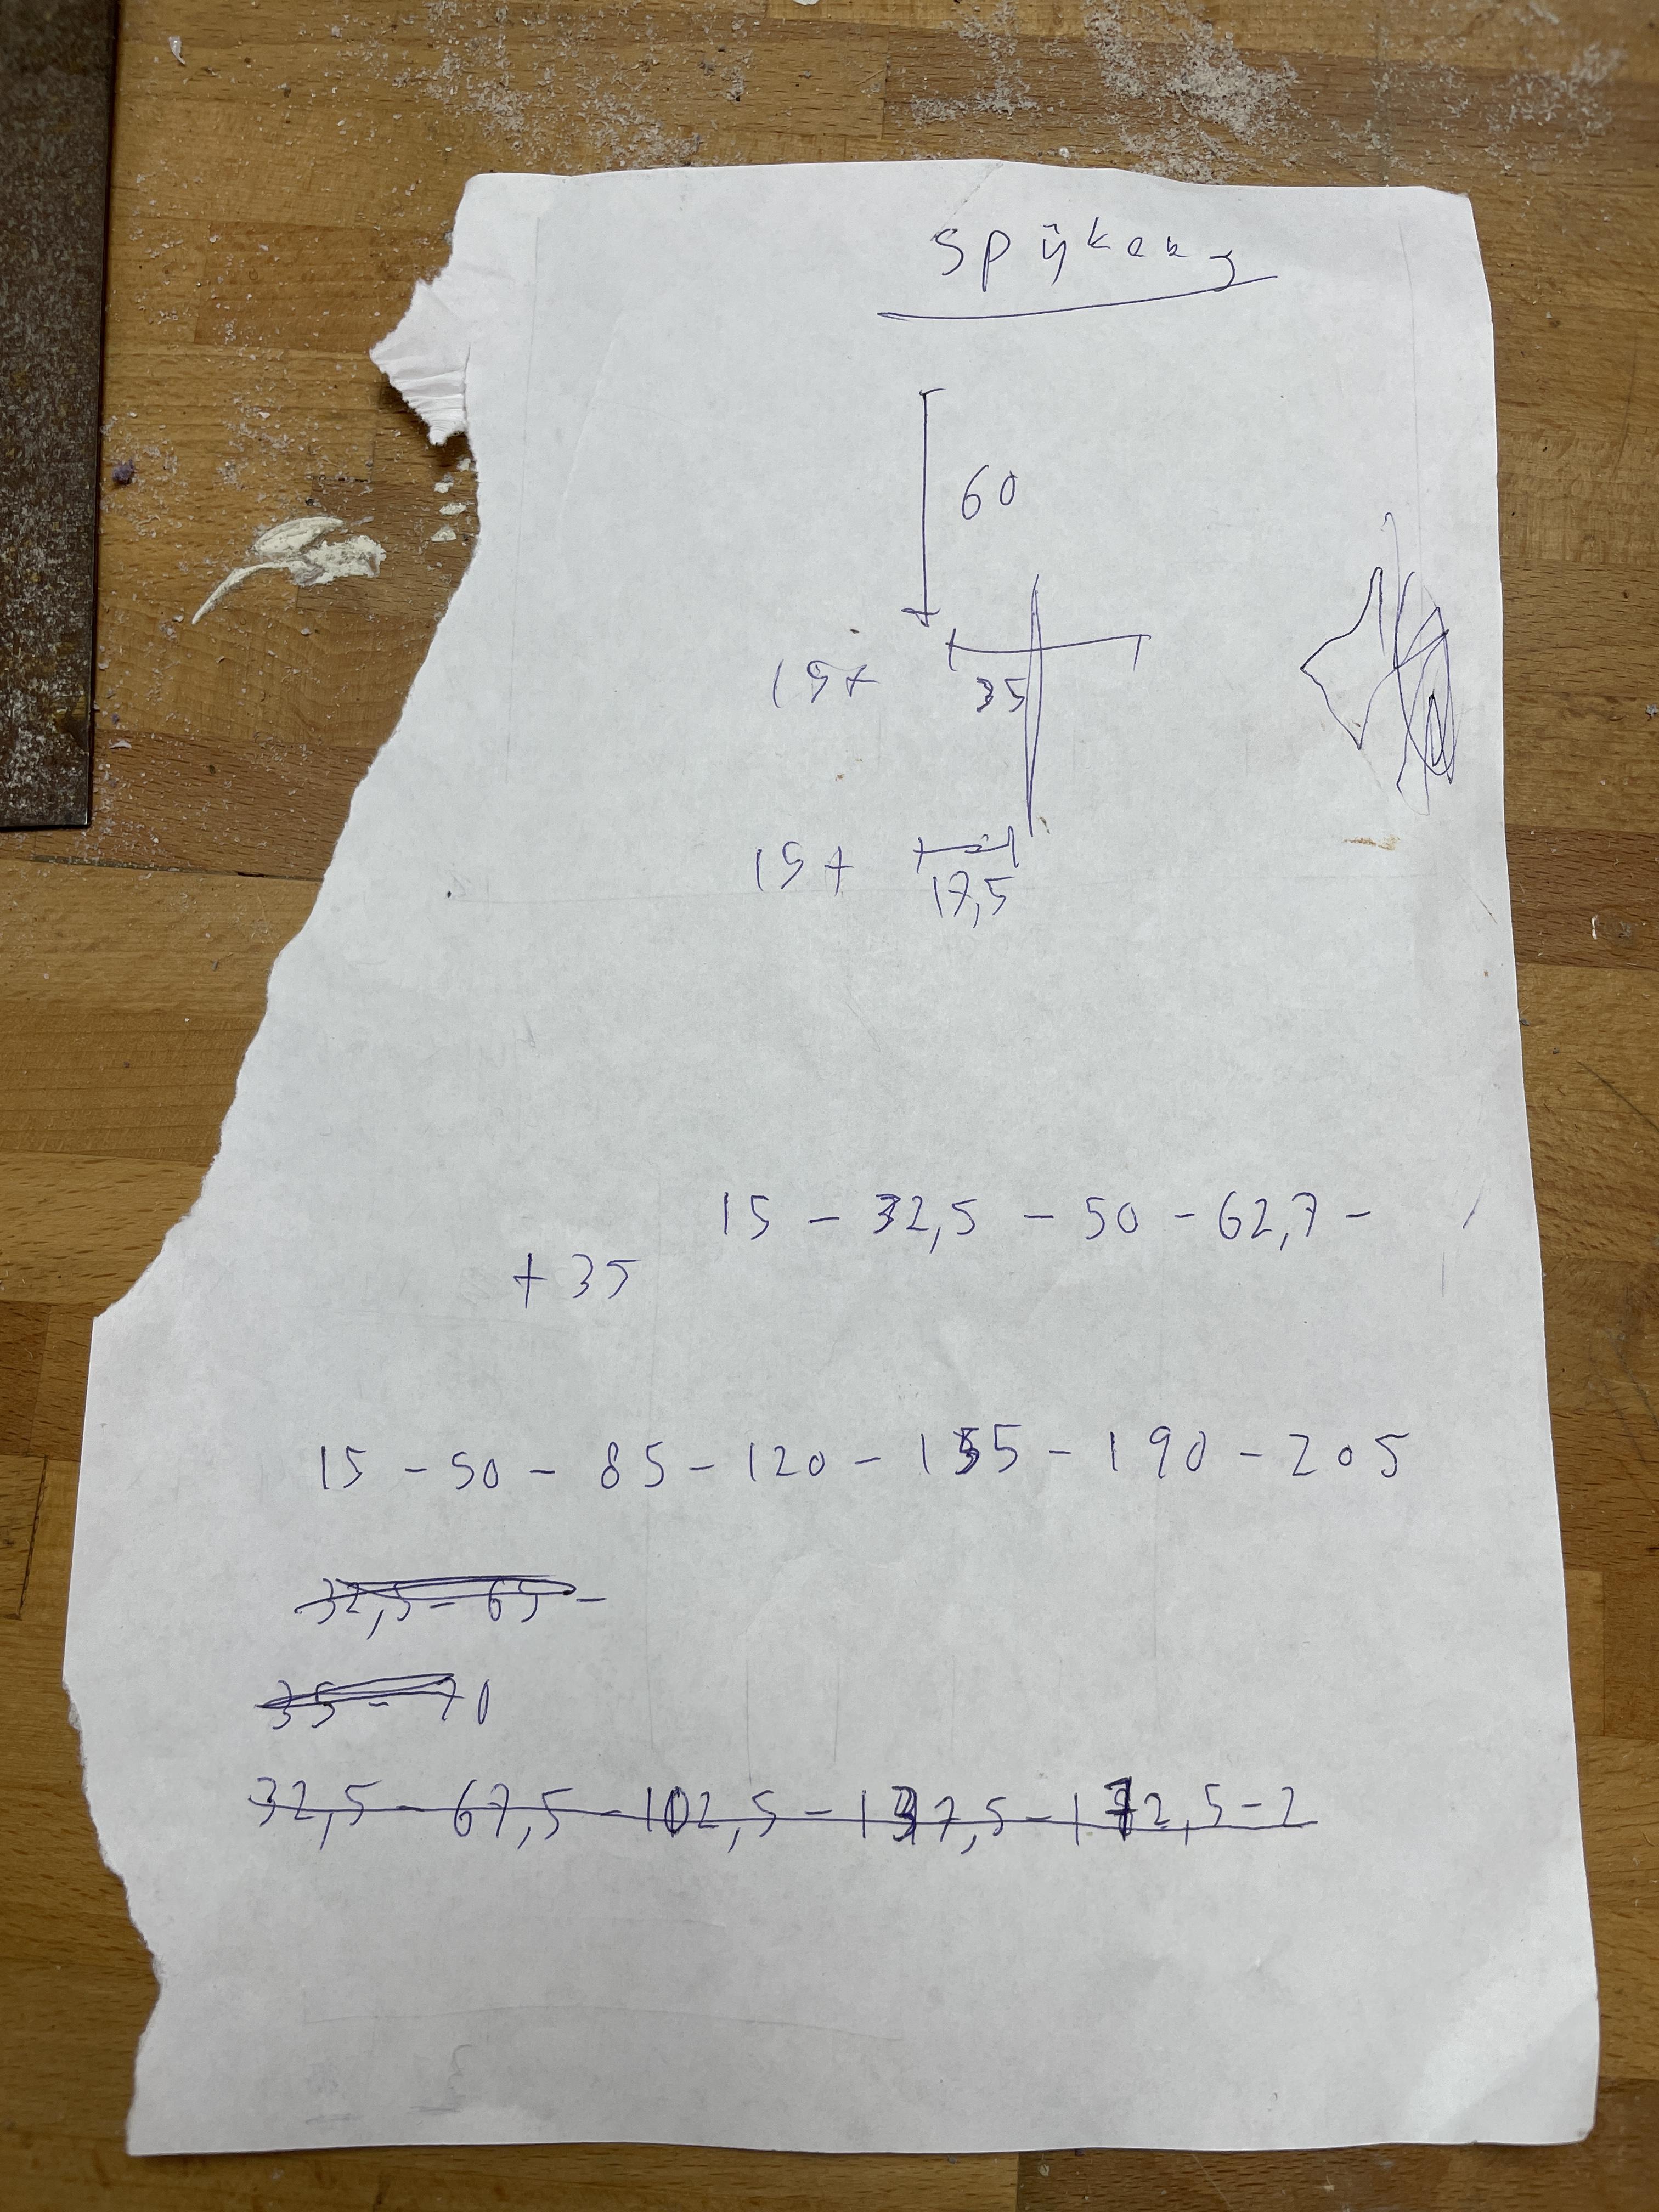 spijkers
60
15+ 35
15+ 17,5
15 - 32,5 - 50 - 62,7 -
+ 35
15 - 50 - 85 - 120 - 155 - 190 - 205
32,5 - 65 -
35 - 70
32,5 - 67,5 - 102,5 - 137,5 - 172,5 - 2